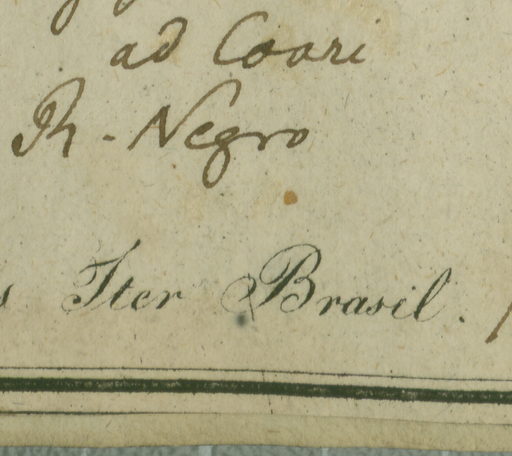 ad Coari
R. Negro
s Iter Brasil.